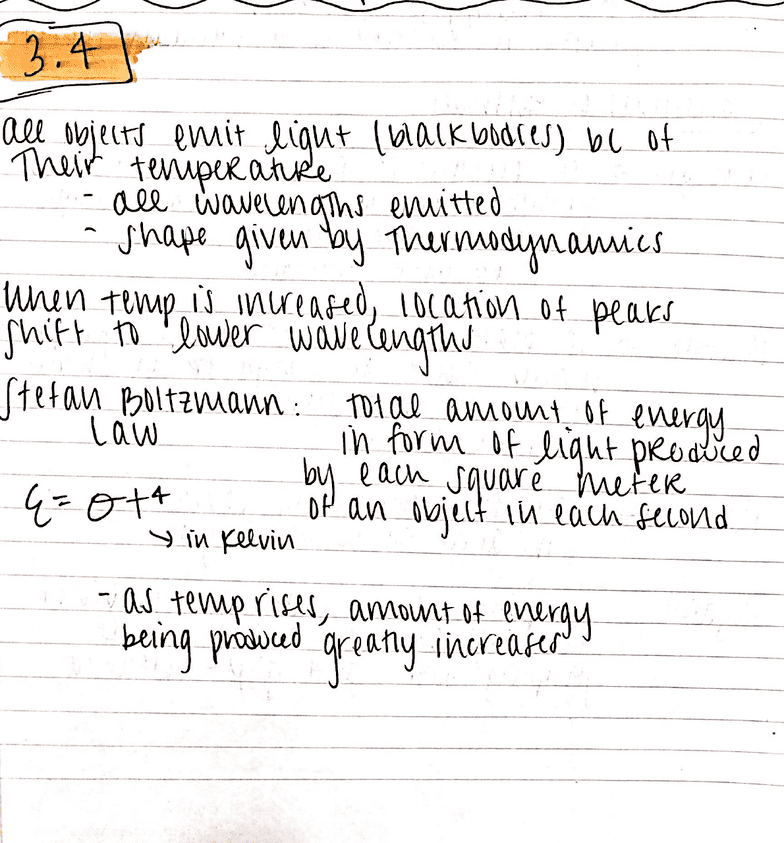 3.4
all objects emit light (blackbodies) bc of
Their temperature
- all wavelengths emitted
- shape given by Thermodynamics
When temp is increased, location of peaks
shift to lower wavelengths
Stefan Boltzmann: Total amount of energy
Law in form of light produced
by each square meter
ε = σt⁴ of an object in each second
↳ in Kelvin
- as temp rises, amount of energy
being produced greatly increases